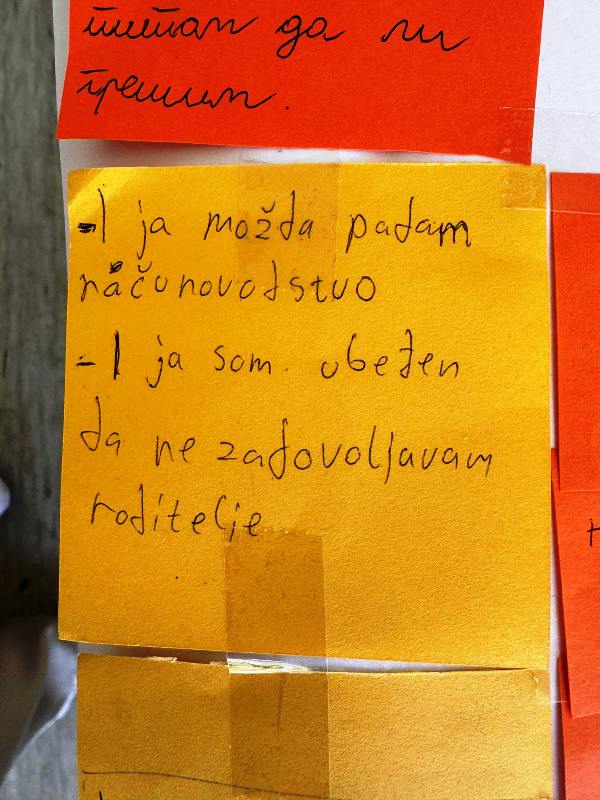 питам да ли
грешим.
-I ja možda padam
računovodstvo
-I ja sam ubeđen
da ne zadovoljavam
roditelje